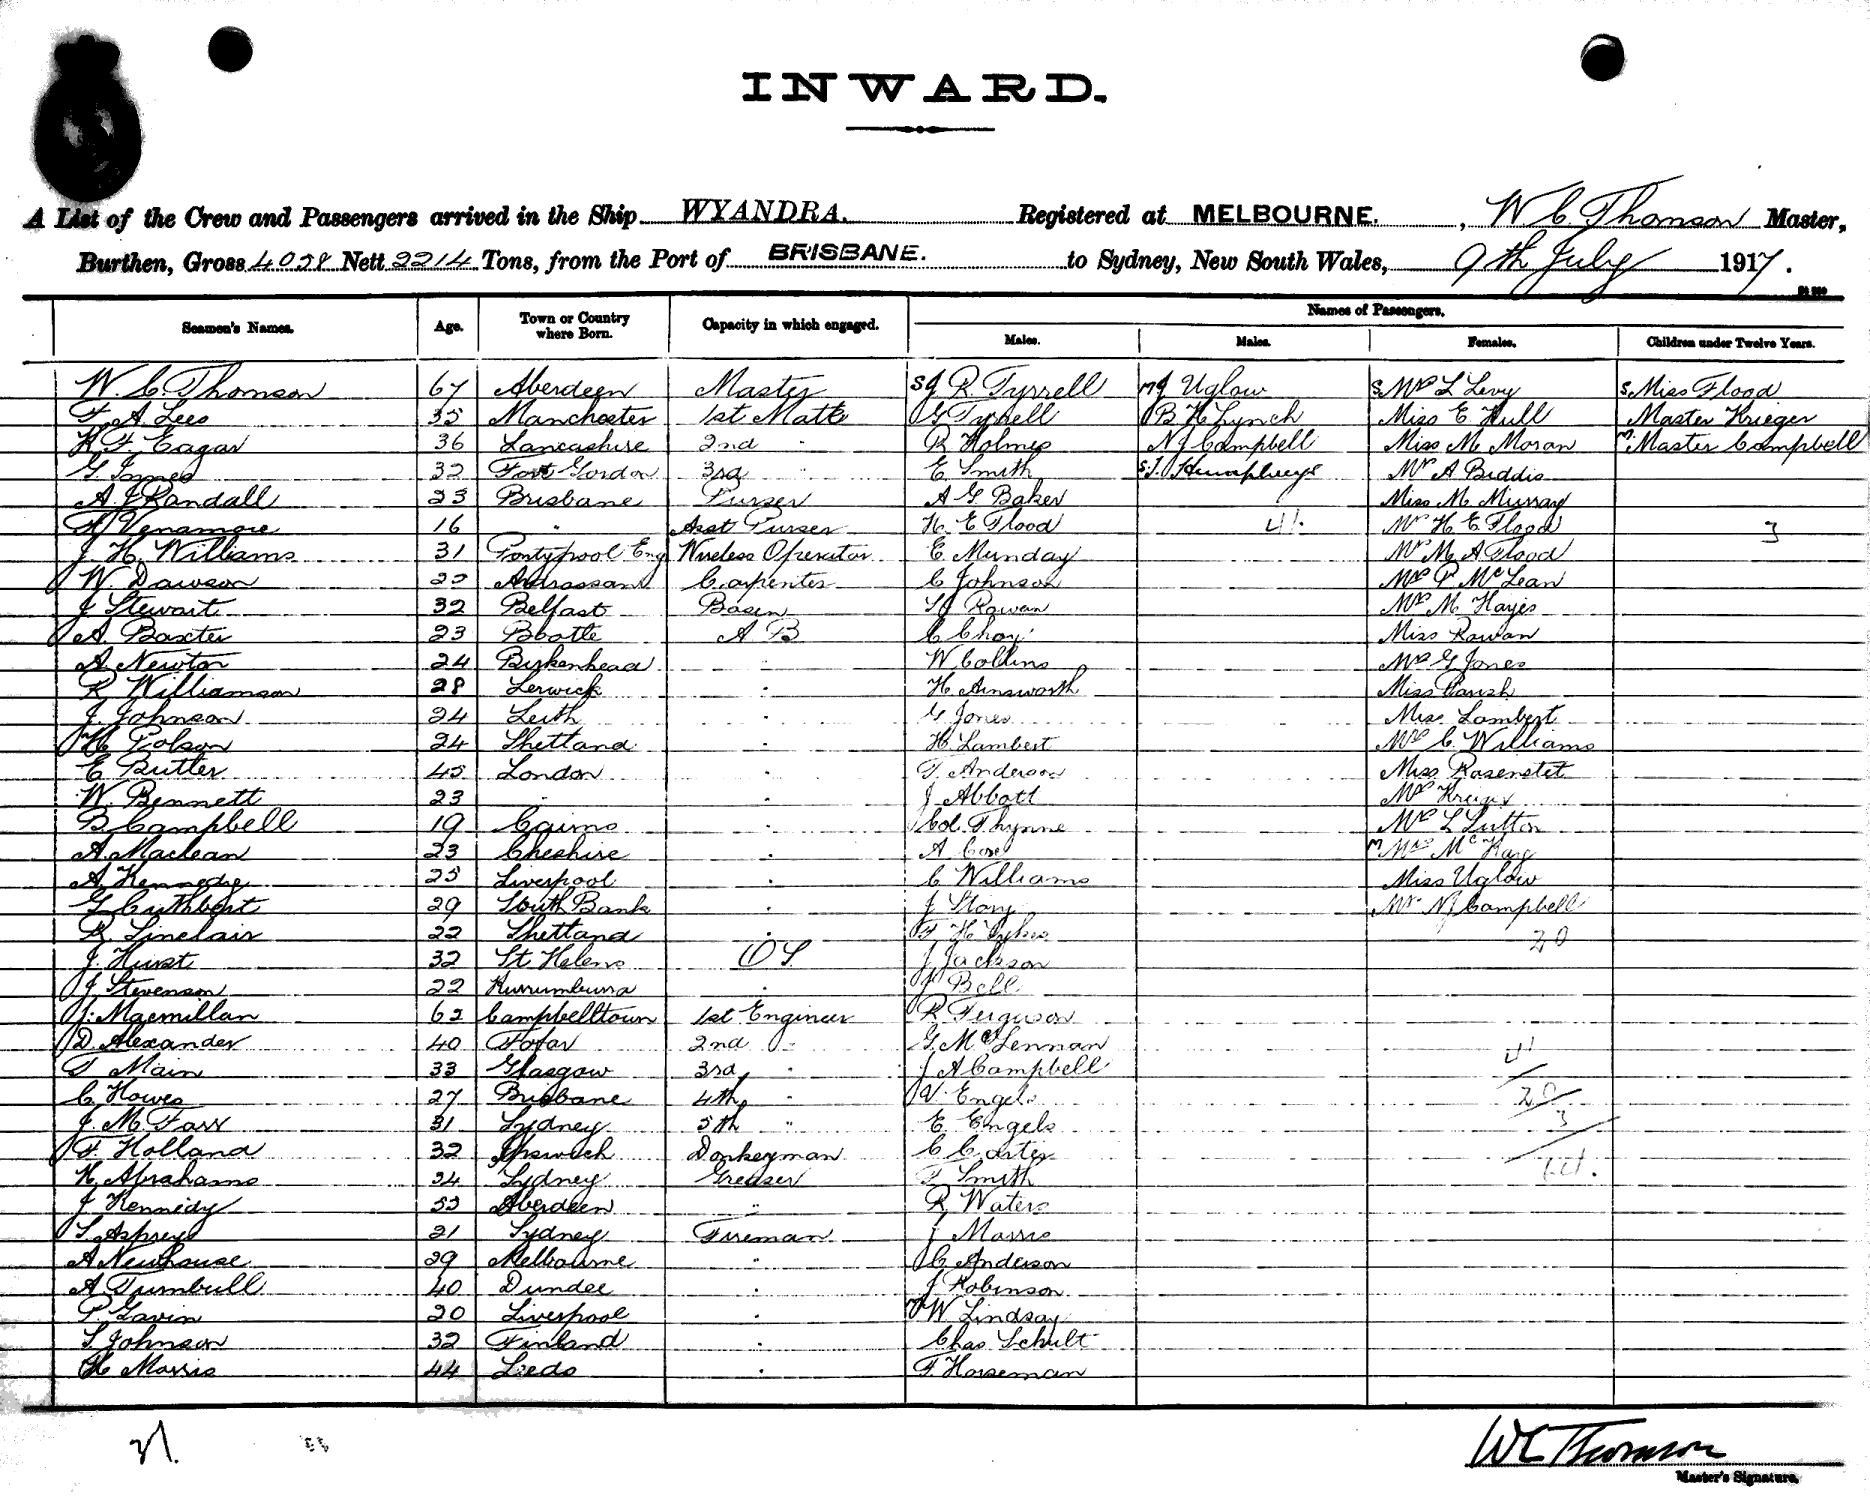 INWARD.
A List of the Crew and Passengers arrived in the Ship WYANDRA. Registered at MELBOURNE. , W C Thomson Master,
Burthen, Gross 4058 Nett 2214 Tons, from the Port of BRISBANE. to Sydney, New South Wales, 9th July 1917.
Names of Passengers.
Seamen's Names. Age. Town or Country where Born. Capacity in which engaged. Males. Males. Females. Children under Twelve Years.
W. C. Thomson 67 Aberdeen Master S J R Tyrrell M J Uglow S Mrs L Levy S Miss Flood
F. A. Lees 35 Manchester 1st Mate G Tyrrell B H Lynch Miss E Hull Master Krieger
H F Eagar 36 Lancashire 2nd " R Holmes N J Campbell Miss M Moran M Master Campbell
G Innes 32 Fort Gordon 3rd " E Smith S J. Humphreys Mrs A Biddis
A. J Randall 23 Brisbane Purser A G Baker Miss M Murray
Venamore 16 " Asst Purser H. E Flood 4. Mrs H E Flood 3
J H Williams 31 Pontypool Eng Wireless Operator E Munday Mrs M A Flood
W. Dawson 22 Ardrossan Carpenter C Johnson Mrs P McLean
J Stewart 32 Belfast Bosun Rowan Mrs M Hayes
A. Baxter 23 Bootle A B C Choy Miss Rowan
A Newton 24 Birkenhead " W Collins Mrs G Jones
R Williamson 28 Lerwick " H Ainsworth Miss Parish
J. Johnson 24 Leith " G Jones Miss Lambert
H Polson 24 Shetland " H Lambert Mrs C Williams
E Butler 45 London " T. Anderson Miss Rosenstet
W. Bennett 23 " " J Abbott Mrs Kreiger
B Campbell 19 Cairns " Col. Thynne Mrs L Sutton
A. Maclean 23 Cheshire " A Cose M Mrs McKay
A Kennedy 25 Liverpool " C Williams Miss Uglow
G Cuthbert 29 South Bank " J Story Mrs N J Campbell
R Sinclair 22 Shetland " F H Sykes 20
J. Hurst 32 St Helens O S J Jackson
J Stevenson 22 Kurrumburra " J Bell
J. Macmillan 62 Campbelltown 1st Engineer R Ferguson
D. Alexander 40 Fofar 2nd " G. McLennan 41
T Main 33 Glasgow 3rd " J A Campbell
C Howes 27 Brisbane 4th " V. Engels 20
J. M. Farr 31 Sydney 5th " E Engels 3
F Holland 32 Ipswich Donkeyman C Coates
H. Abrahams 34 Sydney Greaser T Smith
J Kennedy 52 Aberdeen " R Waters
S. Asprey 21 Sydney Fireman J Morris
A Newhouse 29 Melbourne " C Anderson
A Turnbull 40 Dundee " J Robinson
P. Gavin 20 Liverpool " M W Lindsay
S Johnson 32 Finland " Chas Schult
H Morris 44 Leeds " F. Horseman
37.
WC Thomson
Master's Signature.